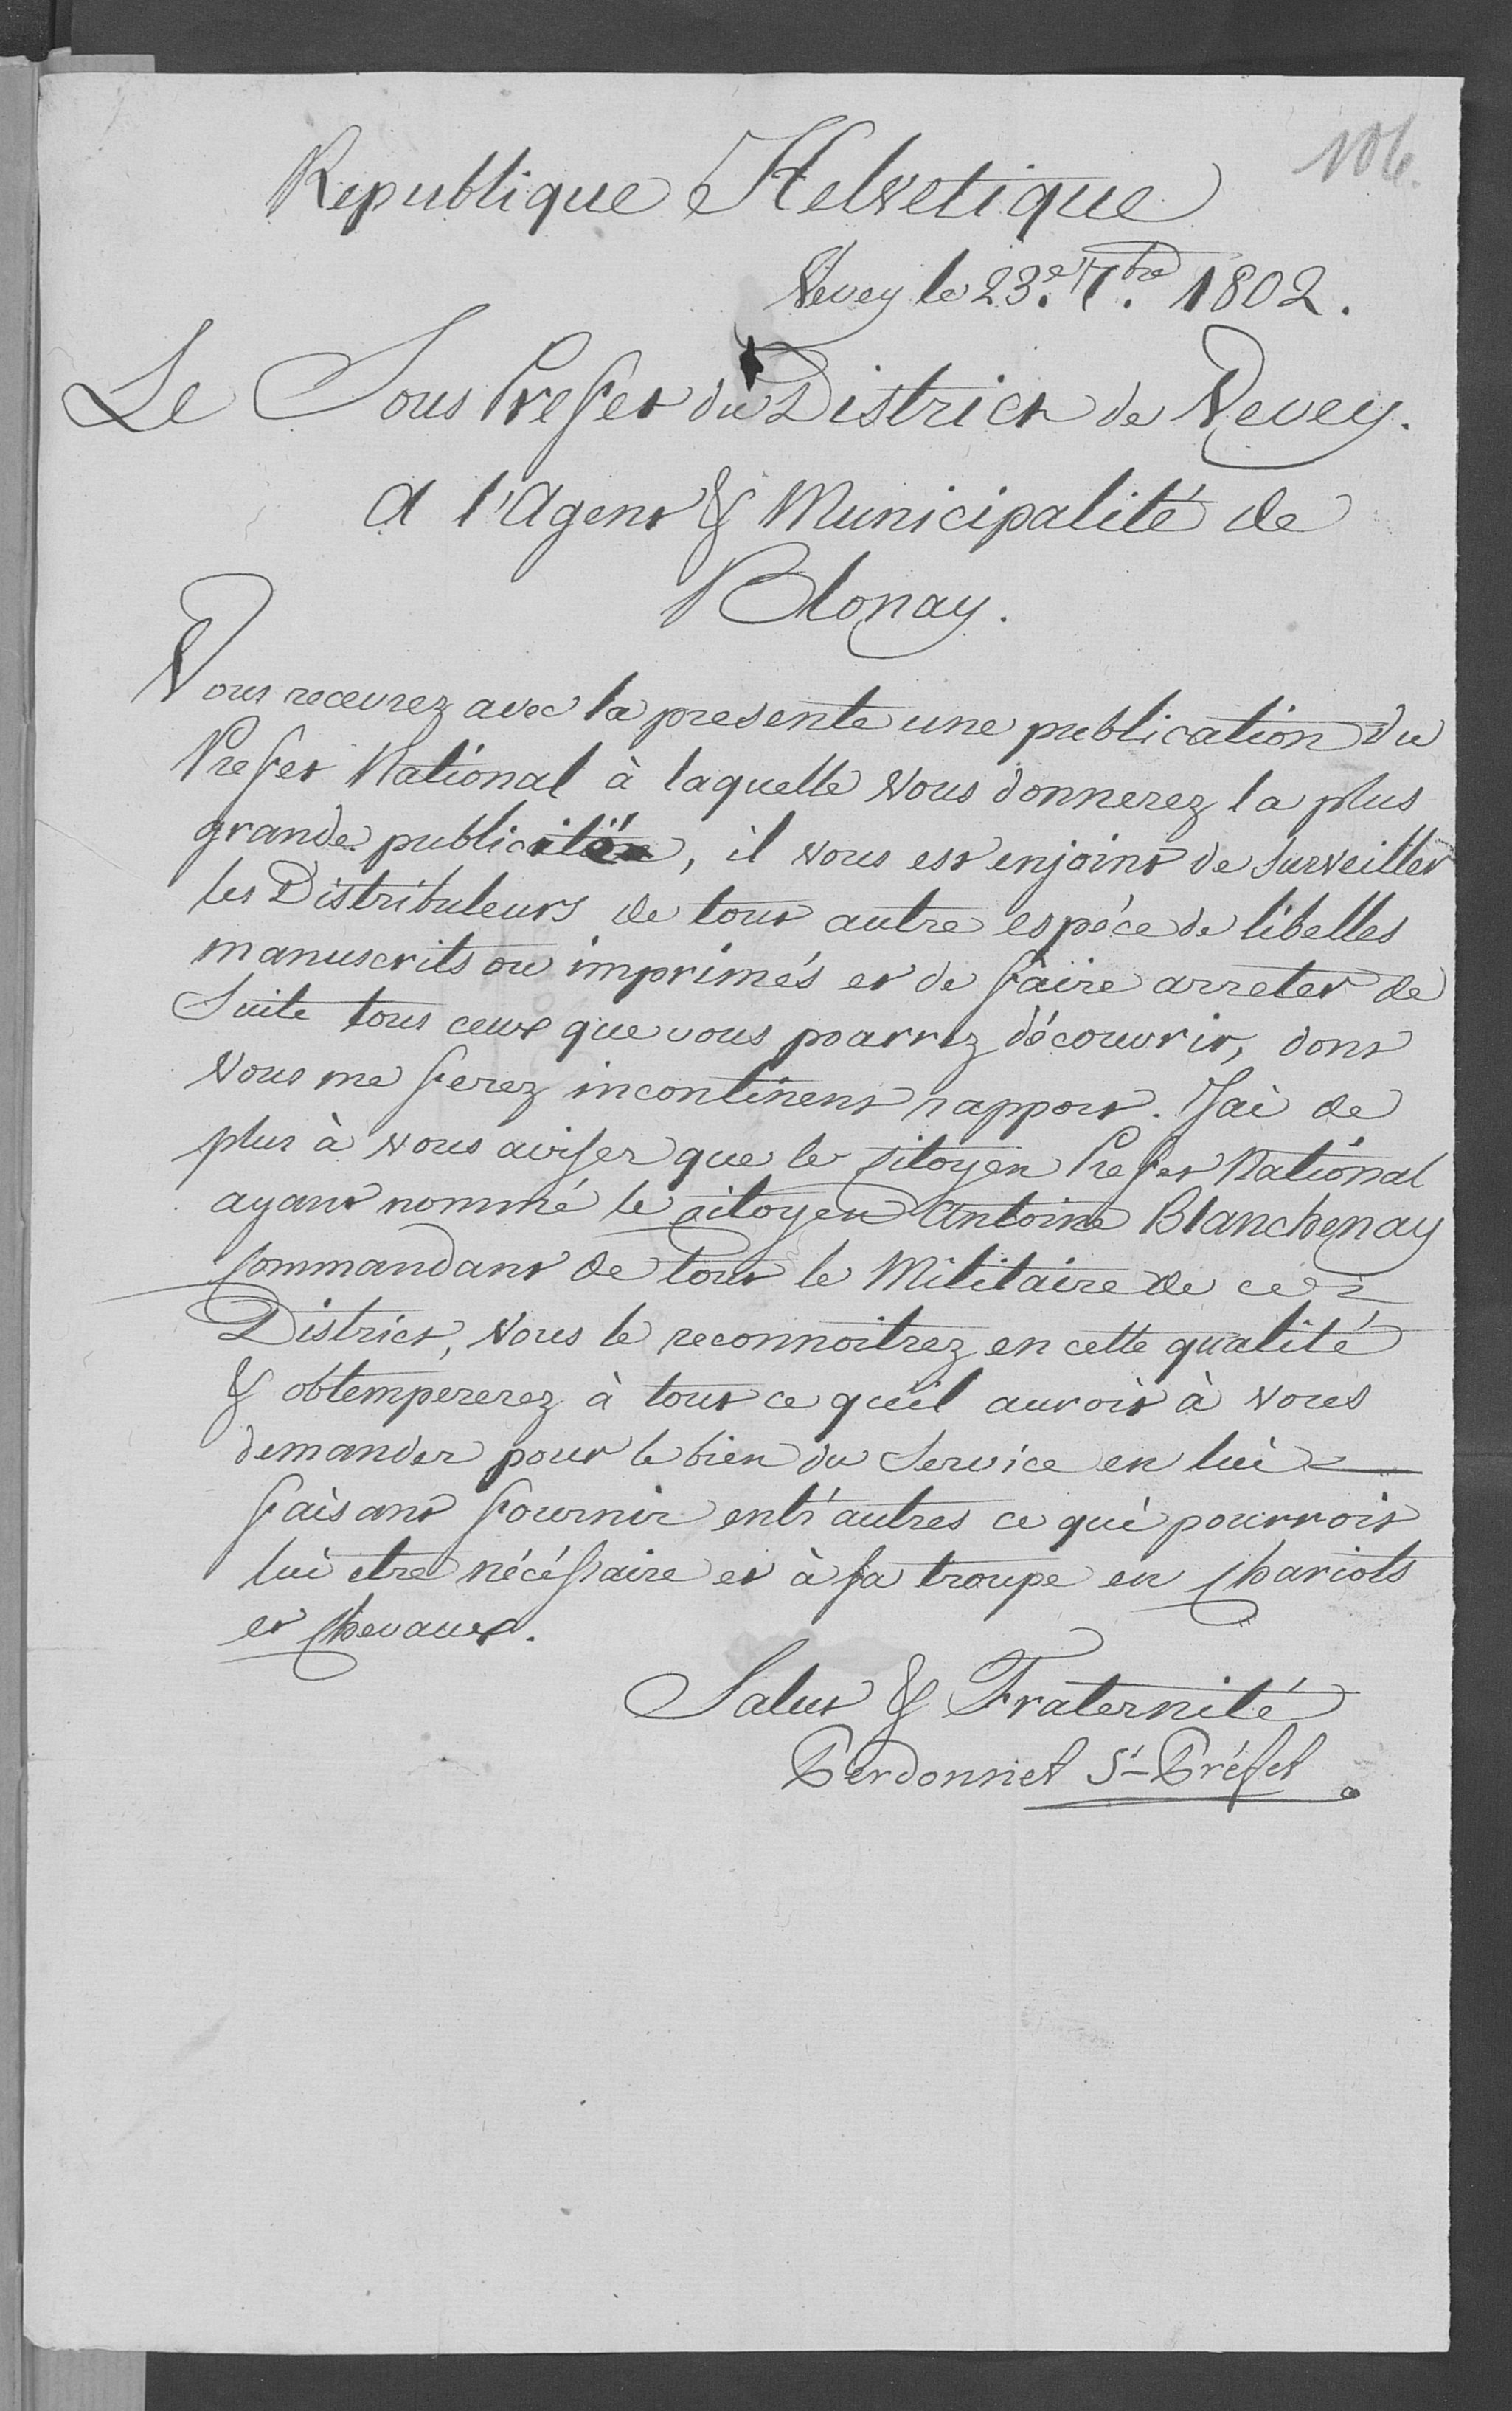 106.
Republique Helvetique
Vevey le 23.e 7.bre 1802.
Le Sous Prefet du District de Vevey.
A l'Agent & Municipalité de
Blonay.
Vous recevrez avec la presente une publication du
Prefet National à laquelle vous donnerez la plus
grande publicité, il vous est enjoint de surveiller
les Distributeurs de tout autre espéce de libelles
manuscrits ou imprimés et de faire arreter de
Suite tous ceux que vous pourrez découvrir, dont
vous me ferez incontinent rapport. J'ai de
plus à vous aviser que le Citoyen Prefet National
ayant nommé le Citoyen Antoine Blanchenay
Commandant de tout le Militaire de ce
District, vous le reconnoitrez en cette qualité
& obtempererez à tout ce qu'il auroit à vous
demander pour le bien du Service en lui
faisant fournir entr'autres ce qui pourroit
lui etre nécéssaire et à sa troupe en Chariots
et Chevaux.
Salut & Fraternité
Perdonnet St-Préfet